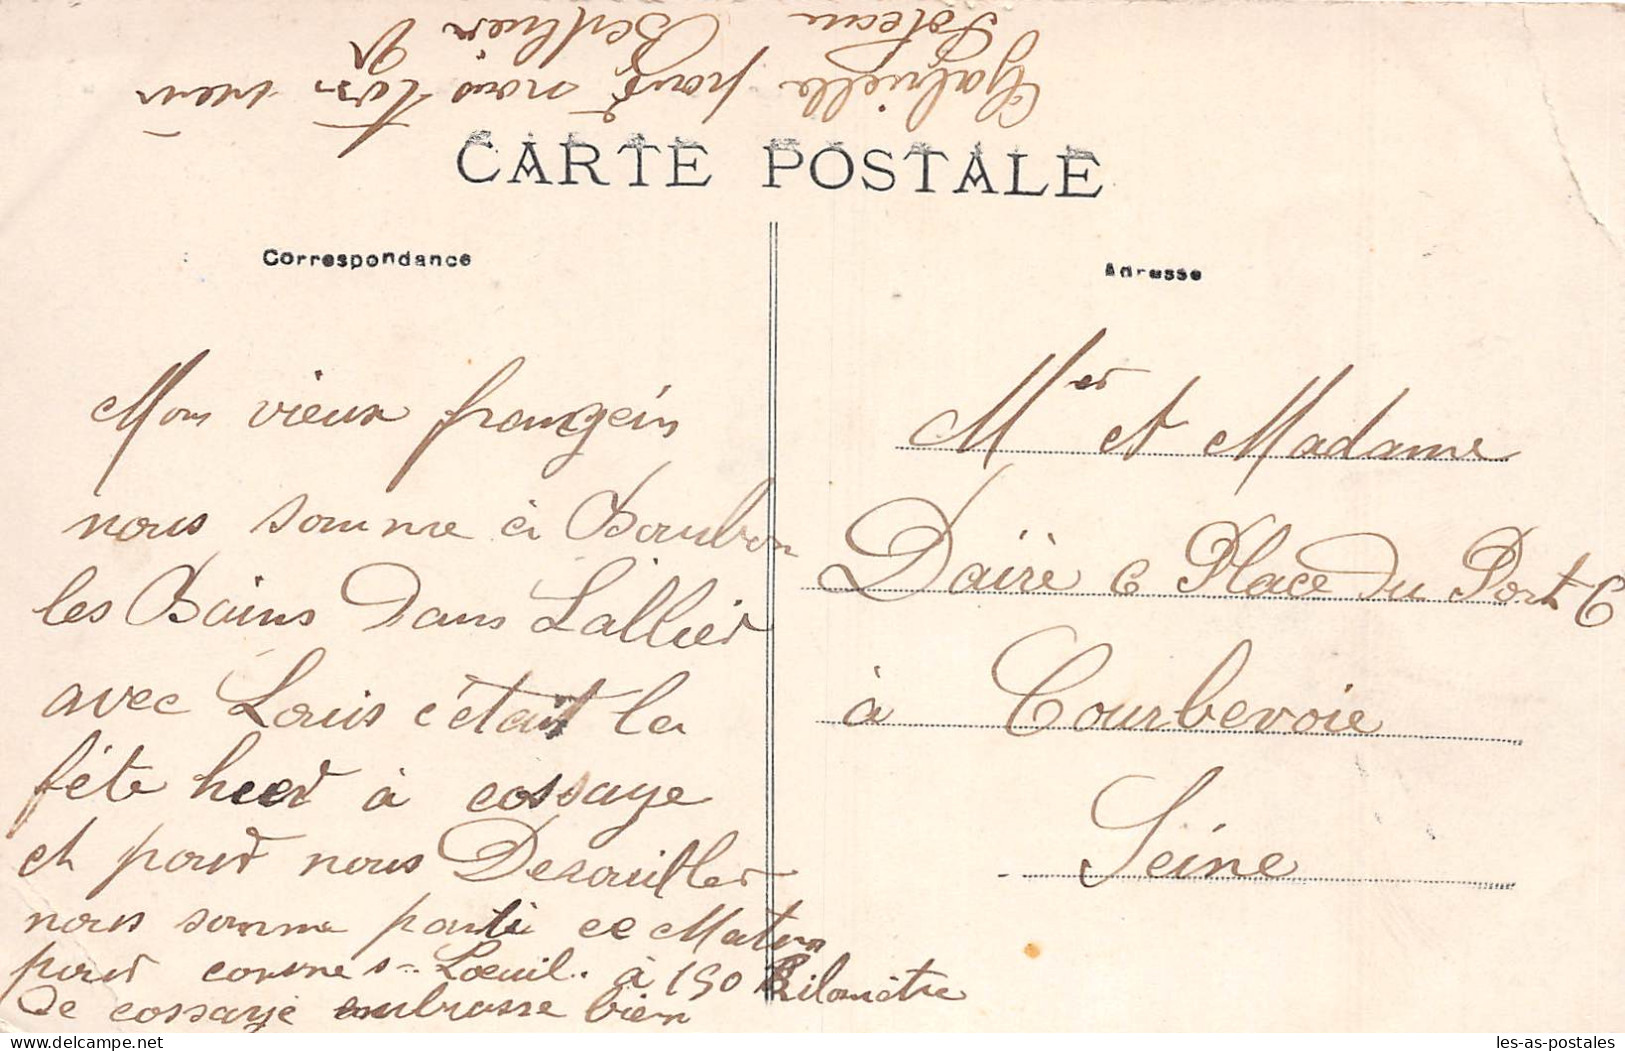 CARTE POSTALE
Correspondance
Adresse
Mon vieux frangein
nous somme à Bourbon
les Bains Dans Lallier
avec Louis c'était la
féte hier à cossaye
et pour nous Desouiller
nous somme parti ce Matin
pour cosne s- Loeuil. à 150 Kilomètre
De cossaye embrasse bien
Gabrielle pour nous ton vieu
Poteau Berthier
Mer et Madame
Dairè 6 Place Du Port 6
à Courbevoie
Seine
les-as-postales